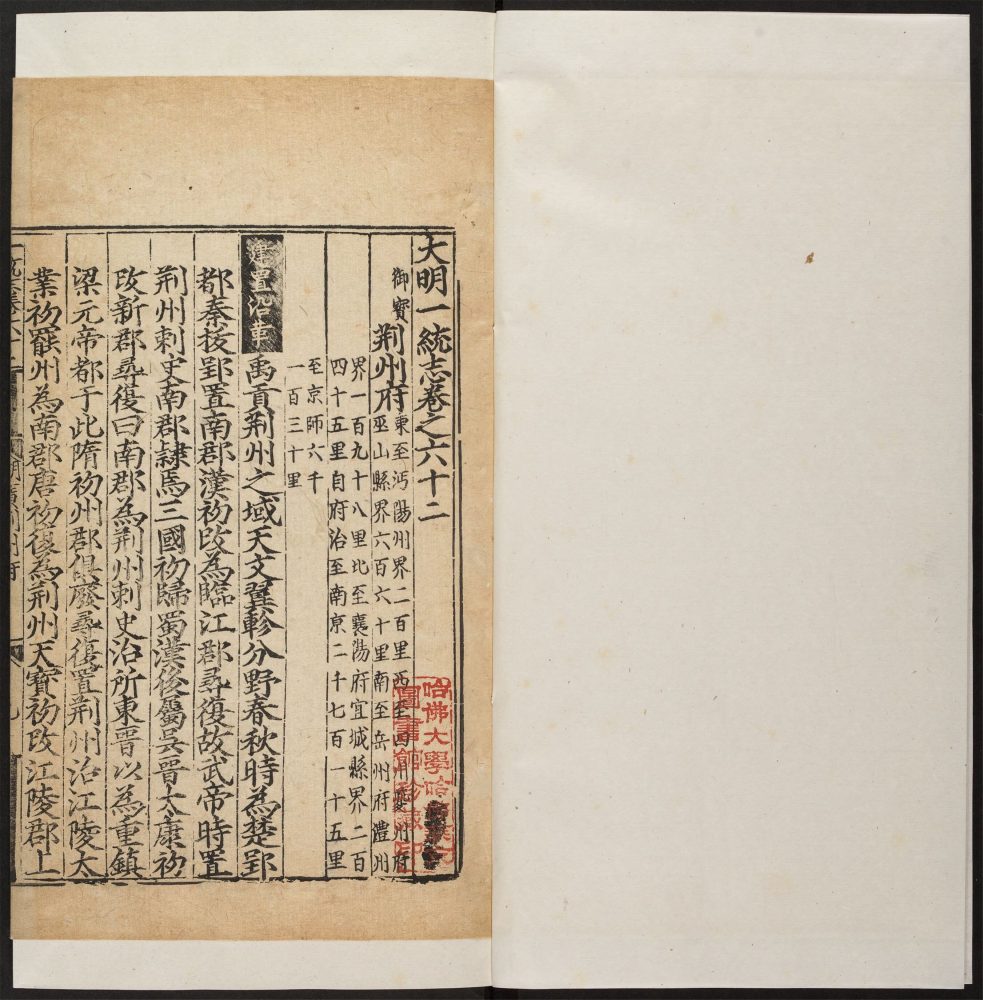 大明一統志卷之六十二
御寶
荆州府
東至沔陽州界二百里西至四川夔州府
巫山縣界六百六十里南至岳州府澧州
界一百九十八里北至襄陽府宜城縣界二百
四十五里自府治至南京二千七百一十五里
至京師六千
一百三十里
建置沿革禹貢荆州之域天文翼軫分野春秋時為楚郢
都秦拔郢置南郡漢初改為臨江郡尋復故武帝時置
荆州刺史南郡隸焉三國初歸蜀漢後屬吳晉太康初
改新郡尋復曰南郡為荆州刺史治所東晉以為重鎮
梁元帝都于此隋初州郡俱廢尋復置荆州治江陵大
業初罷州為南郡唐初復為荆州天寶初改江陵郡上
哈佛大學哈
圖書館珍藏印